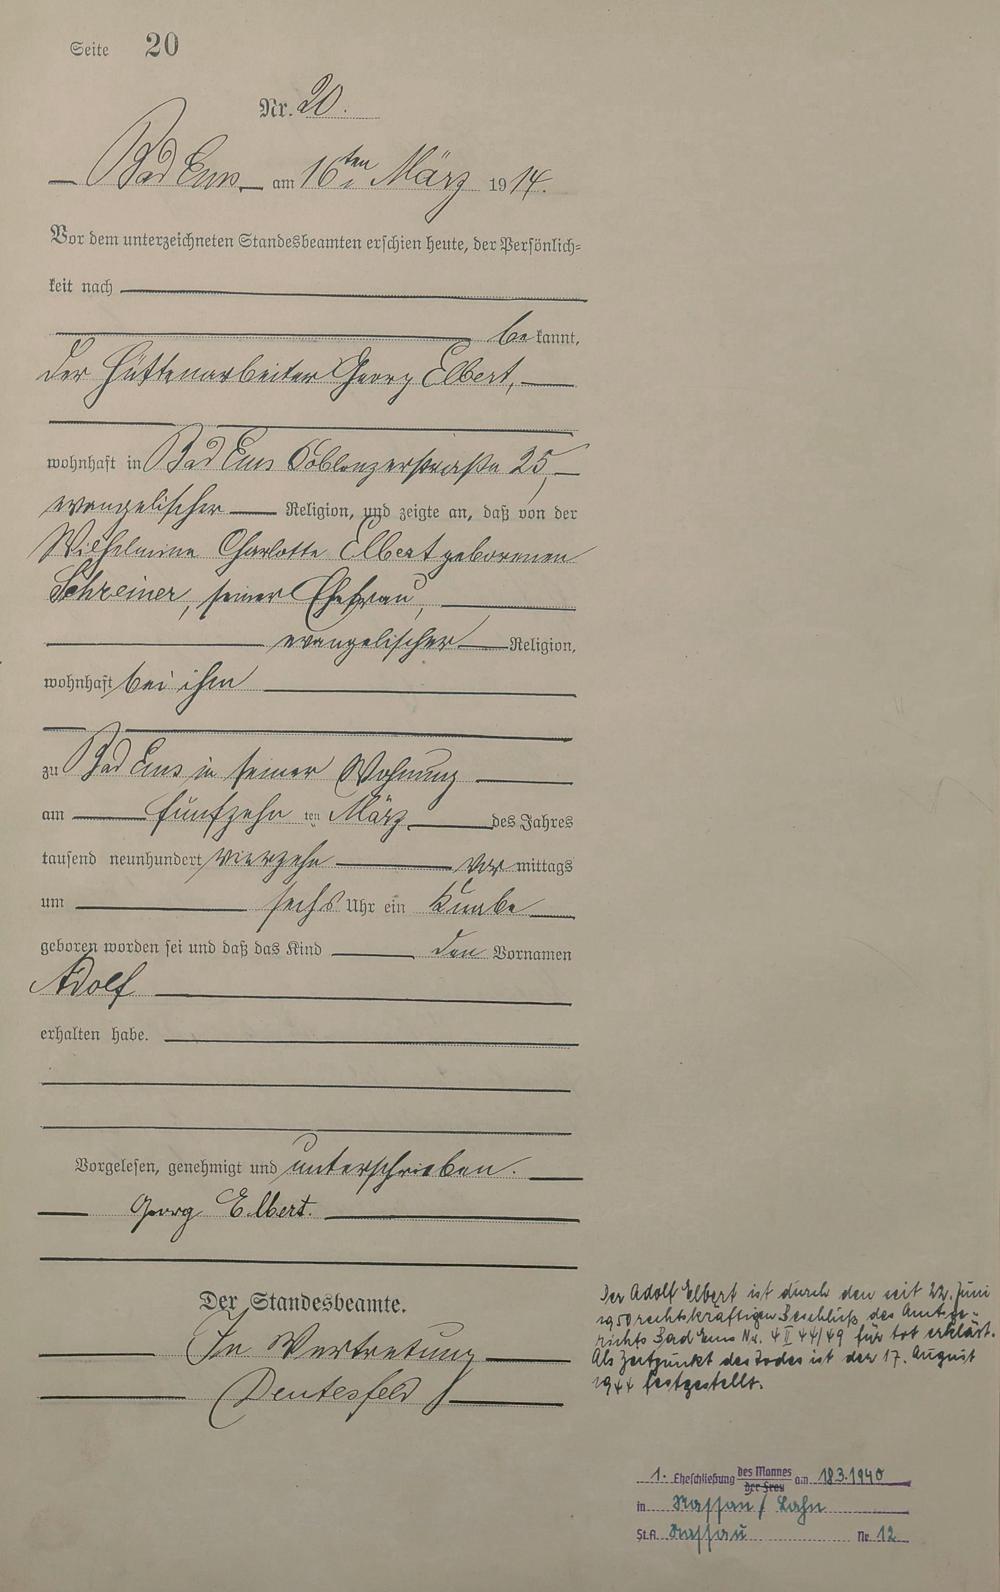 Seite 20
Nr. 20.
Bad Ems am 16ten März 1914.
Vor dem unterzeichneten Standesbeamten erschien heute, der Persönlich=
keit nach
bekannt,
der Hüttenarbeiter Georg Elbert,
wohnhaft in Bad Ems Coblenzerstraße 25,
evangelischer Religion, und zeigte an, daß von der
Wilhelmine Charlotte Elbert geborenen
Schreiner, seiner Ehefrau,
evangelischer Religion,
wohnhaft bei ihm
zu Bad Ems in seiner Wohnung
am fünfzehn ten März des Jahres
tausend neunhundert vierzehn vor mittags
um sechs Uhr ein Knabe
geboren worden sei und daß das Kind den Vornamen
Adolf
erhalten habe.
Vorgelesen, genehmigt und unterschrieben.
Georg Elbert.
Der Standesbeamte.
In Vertretung
Der Adolf Elbert ist durch den seit 22. Juni
1950 rechtskräftigen Beschluß des Amtsge-
richts Bad Ems Nr. 4 II 44/49 für tot erklärt.
Als Zeitpunkt des Todes ist der 17. August
1944 festgestellt.
1. Eheschließung des Mannes am 18.3.1940
der Frau
in Nassau / Lahn
St.A. Nassau Nr. 12